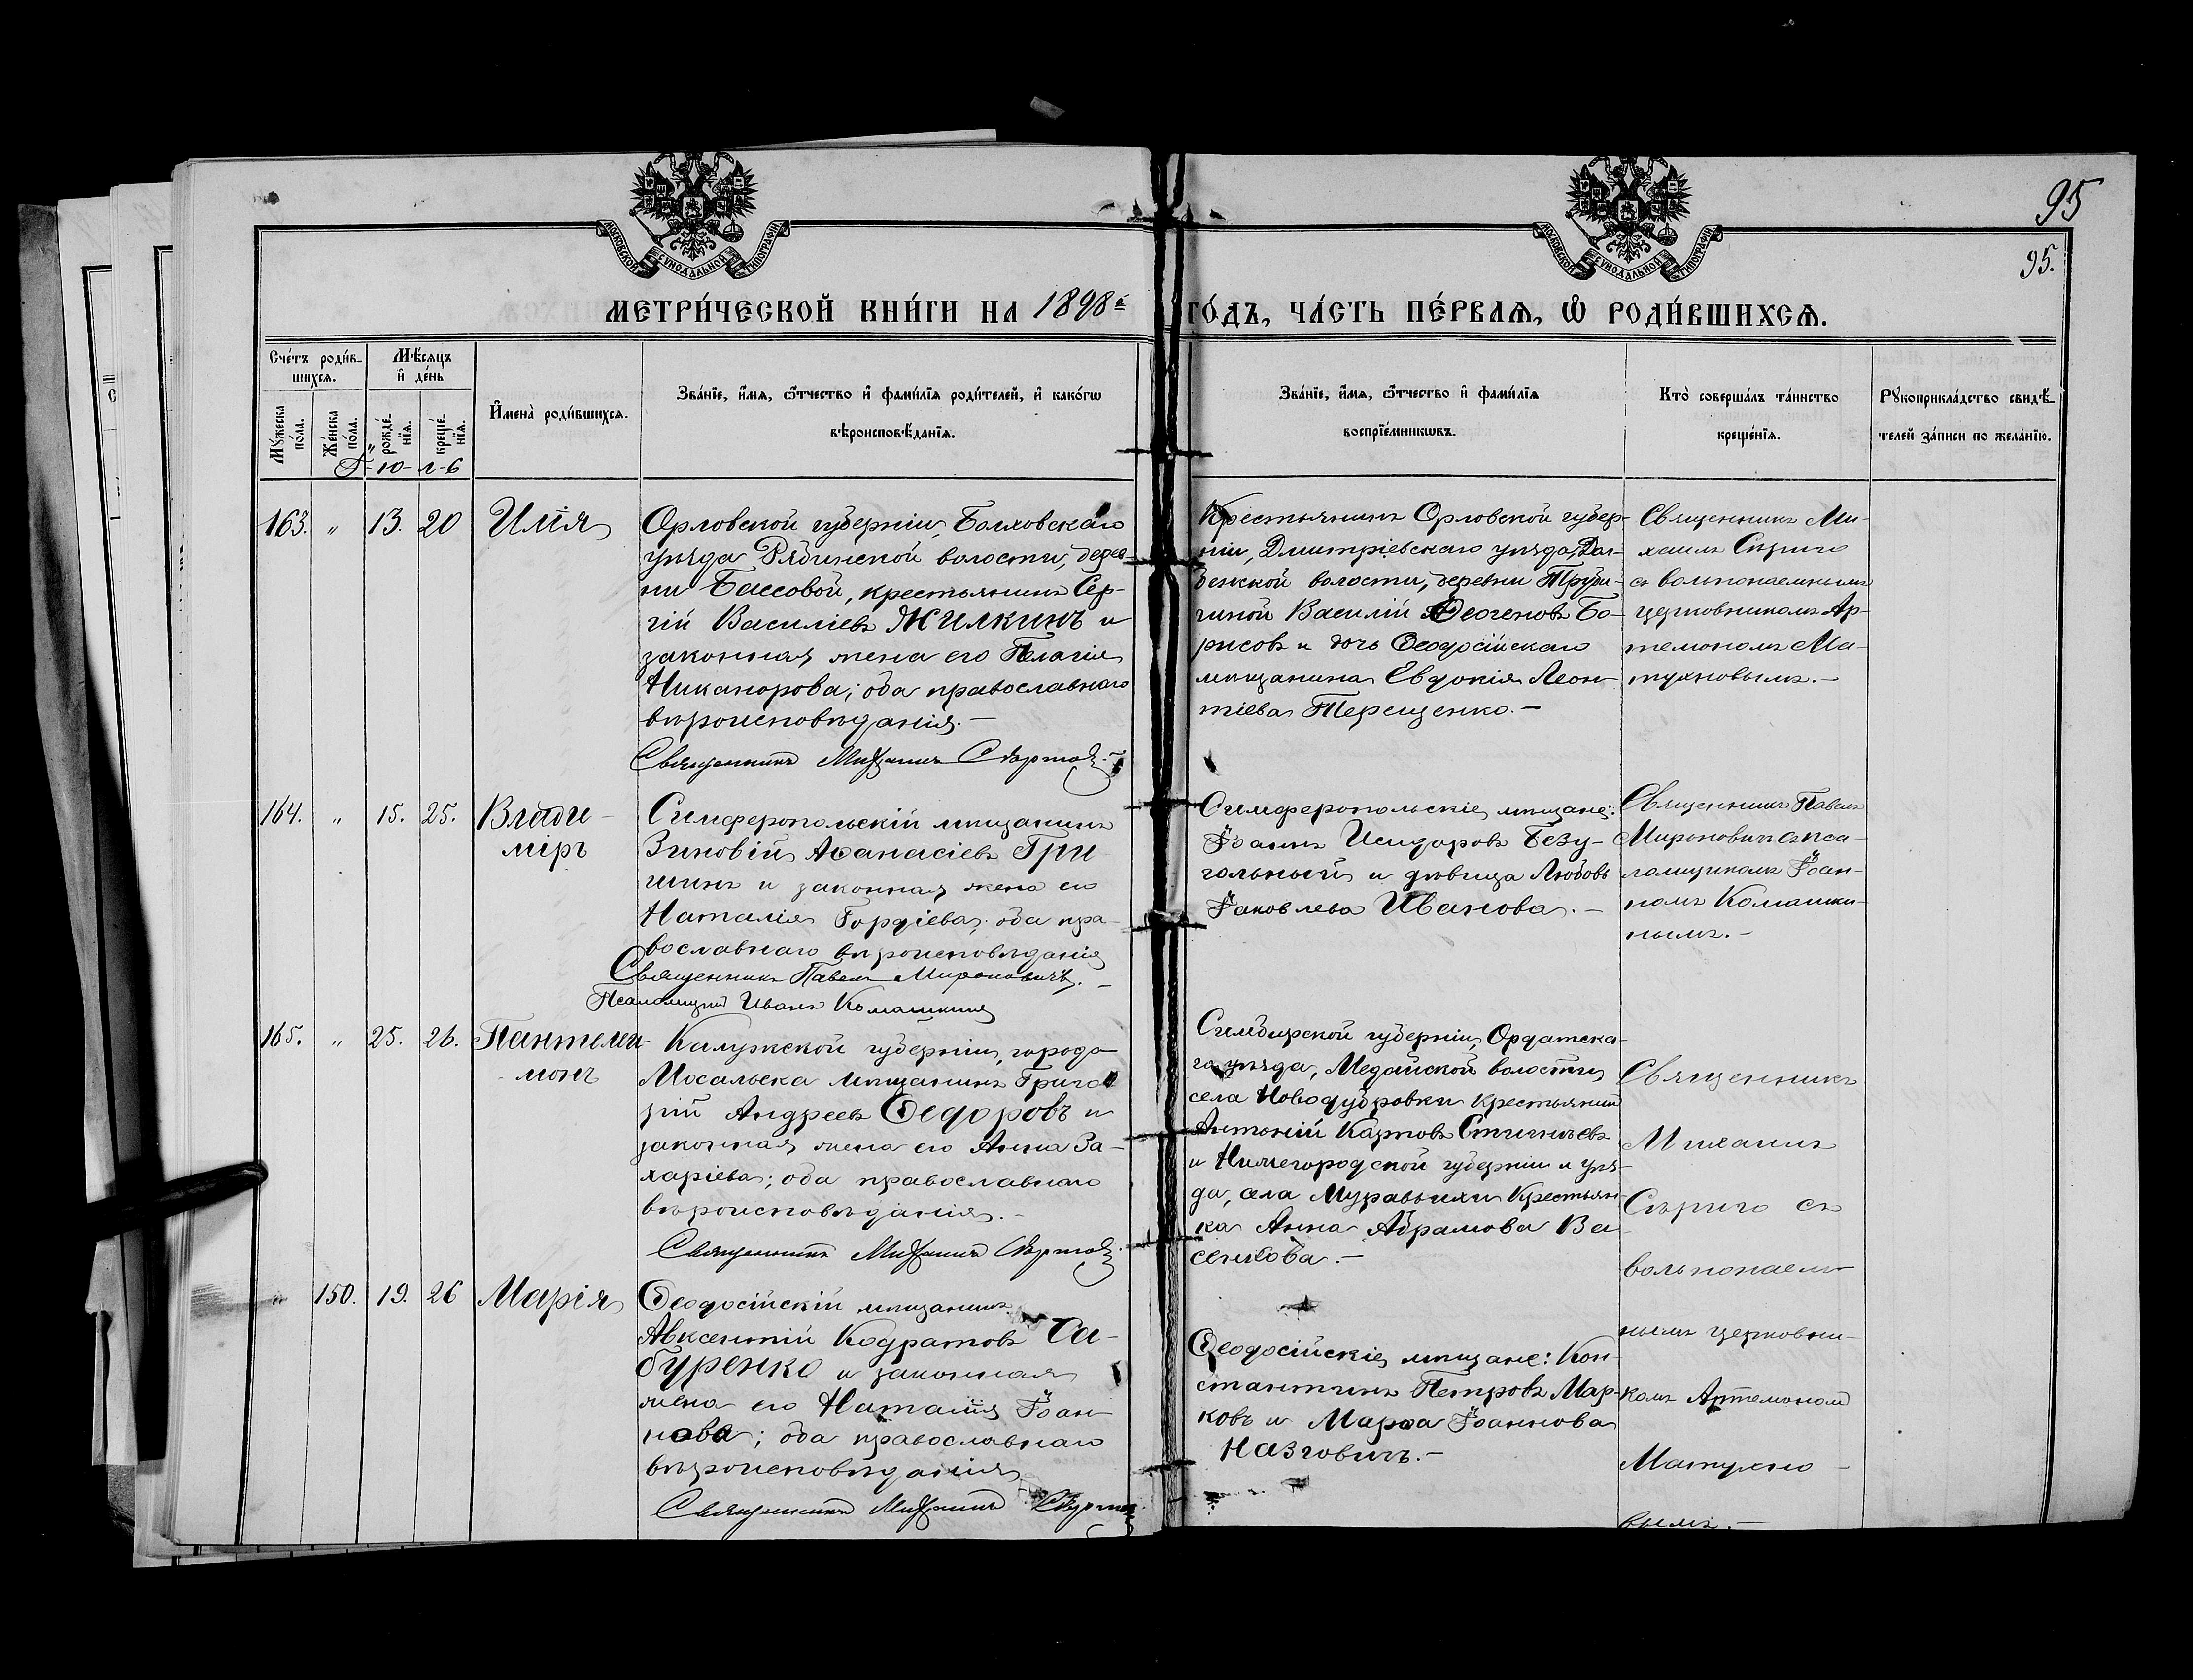 95
95.
МОСКОВСКОЙ СѴНОДАЛЬНОЙ ТИПОГРАФІИ
МОСКОВСКОЙ СѴНОДАЛЬНОЙ ТИПОГРАФІИ
МЕТРИ́ЧЕСКОЙ КНИ́ГИ НА 1898й ГО́ДЪ, ЧА́СТЬ ПЕ́РВАѦ, Ѽ РОДИ́ВШИХСѦ.
Сче́тъ роди́в-
шихсѧ.
Мꙋжеска
по́ла.
Же́нска
по́ла.
Мѣ́сѧцъ
и҆ де́нь
рожде́-
нїѧ.
креще́-
нїѧ.
И҆мена̀ роди́вшихсѧ.
Зва́нїе, и҆́мѧ, ѻ҆́тчество и҆ фами́лїѧ роди́телей, и҆ како́гѡ
вѣроисповѣ́данїѧ.
Зва́нїе, и҆́мѧ, ѻ҆́тчество и҆ фами́лїѧ
воспрїе́мникѡвъ.
Кто̀ соверша́лъ та́инство
креще́нїѧ.
Рꙋкоприкла́дство свидѣ́-
телей за́писи по жела́нїю.
І-ю-л-ь
163. " 13. 20 Илія
Орловской губерніи, Болховскаго
уѣзда Рябинской волости, дерев
ни Бассовой, крестьянинъ Сер-
гій Василіевъ Жилкинъ и
законная жена его Пелагія
Никанорова; оба православнаго
вѣроисповѣданія.–
Священникъ Михаилъ
Крестьянинъ Орловской губер-
ніи, Дмитріевскаго уѣзда,
волости, деревни
Василій Борисовъ и дочь Ѳеодосійскаго
мѣщанина Евдокія Леон-
тіева Терещенко.–
Священникъ Ми-
хаилъ Сѣриго
съ вольнонаемнымъ
церковникомъ Ар-
темономъ Ма-
тухновымъ.–
164. " 15. 25. Влади-
міръ
Симферопольскій мѣщанинъ
Зиновій Аѳанасіевъ Гри
шинъ и законная жена его
Наталія Гордіева; оба пра-
вославнаго вѣроисповѣданія
Священникъ Павелъ Мироновичъ.–
Псаломщикъ Иванъ Комашкинъ
Симферопольскіе мѣщане:
Іоаннъ Исидоровъ Безу-
гольный и дѣвица Любовь
Іаковлева Иванова.–
Священникъ Павелъ
Мироновичъ съ пса-
ломщикомъ Іоан-
номъ Комашки-
нымъ.–
165. " 25. 26. Пантелеи-
монъ
Калужской губерніи, города
Мосальска мѣщанинъ Григо
рій Андреевъ Ѳедоровъ и
законная жена его Анна За-
харіева; оба православнаго
вѣроисповѣданія.–
Священникъ Михаилъ
Симбирской губерніи, Ордатска-
го уѣзда, Медайской волости,
села Новодубровки крестьянинъ
Антоній Карповъ
и Нижегородской губерніи и уѣз-
да, села Муравьихи крестьян-
ка Анна Абрамова Ва
сенкова.–
Священникъ
Михаилъ
Сѣриго съ
вольнонаем-
нымъ церковни-
комъ Артемономъ
Матухно-
вымъ.–
" 150. 19. 26 Марія
Ѳеодосійскій мѣщанинъ
Авксентій Кодратовъ Са-
буренко и законная
жена его Наталія Іоан-
нова; оба православнаго
вѣроисповѣданія
Священникъ Михаилъ
Ѳеодосійскіе мѣщане: Кон-
стантинъ Петровъ Мар-
ковъ и Марѳа Іоаннова
Назговичъ.–